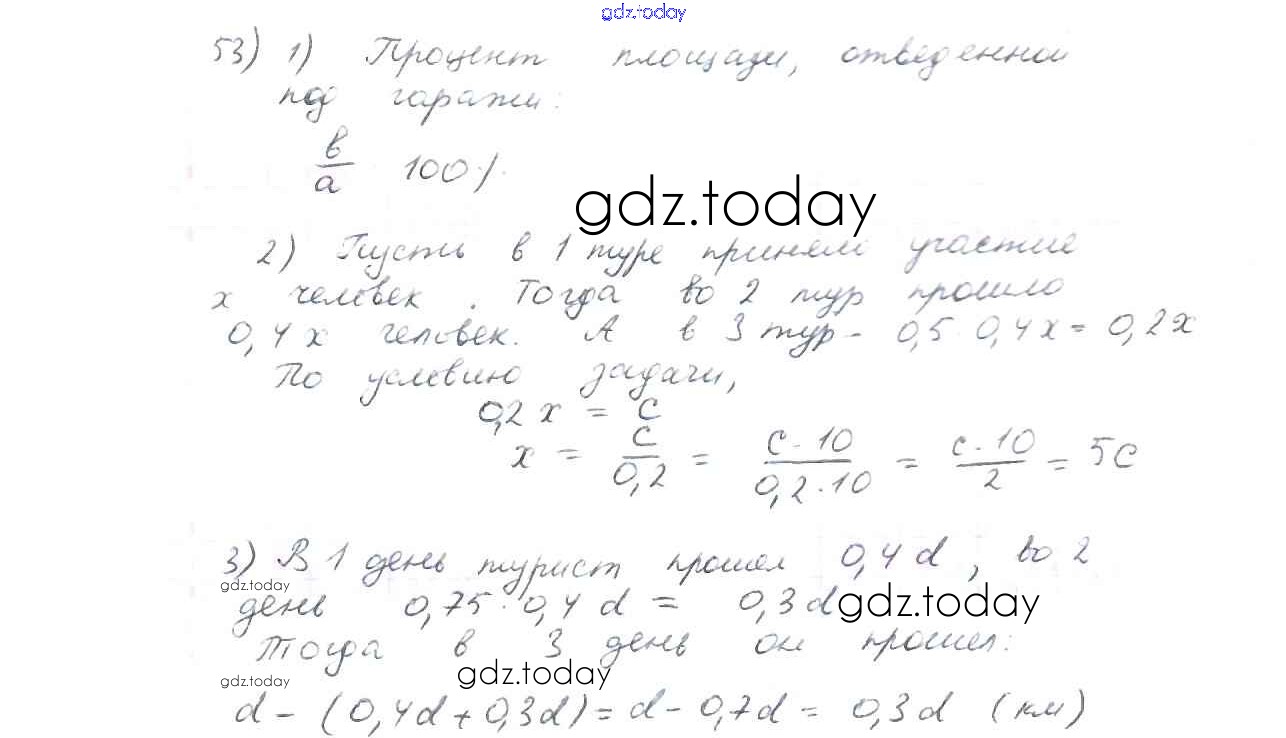 gdz.today
53) 1) Процент площади, отведенной
под гаражи:
в/а · 100%
gdz.today
2) Пусть в 1 туре приняло участие
x человек. Тогда во 2 тур прошло
0,4x человек. А в 3 тур - 0,5·0,4x = 0,2x
По условию задачи,
0,2x = c
x = c/0,2 = c·10/0,2·10 = c·10/2 = 5c
3) В 1 день турист прошел 0,4d, во 2
gdz.today
день 0,75·0,4d = 0,3d
gdz.today
Тогда в 3 день он прошел:
gdz.today
gdz.today
d - (0,4d + 0,3d) = d - 0,7d = 0,3d (км)